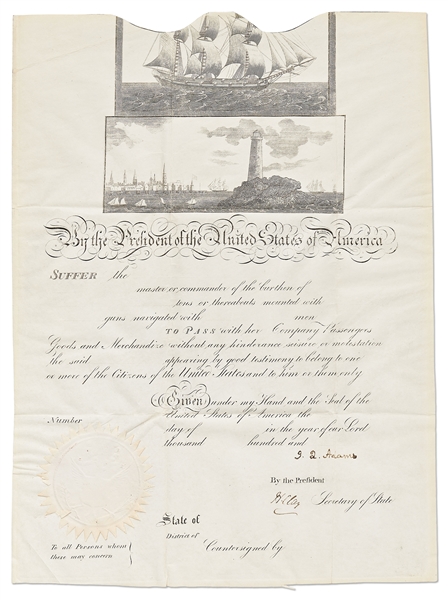 By the President of the United States of America
SUFFER the
master or commander of the burthen of
tons or thereabouts mounted with
guns navigated with men
TO PASS with her Company Passengers
Goods and Merchandize without any hinderance seisure or molestation
the said appearing by good testimony to belong to one
or more of the Citizens of the United States and to him or them only
Given under my Hand and the Seal of the
United States of America the
day of in the year of our Lord
thousand hundred and
Number
J. Q. Adams
By the President
H Clay Secretary of State
State of
District of
Countersigned by
To all Persons whom
these may concern